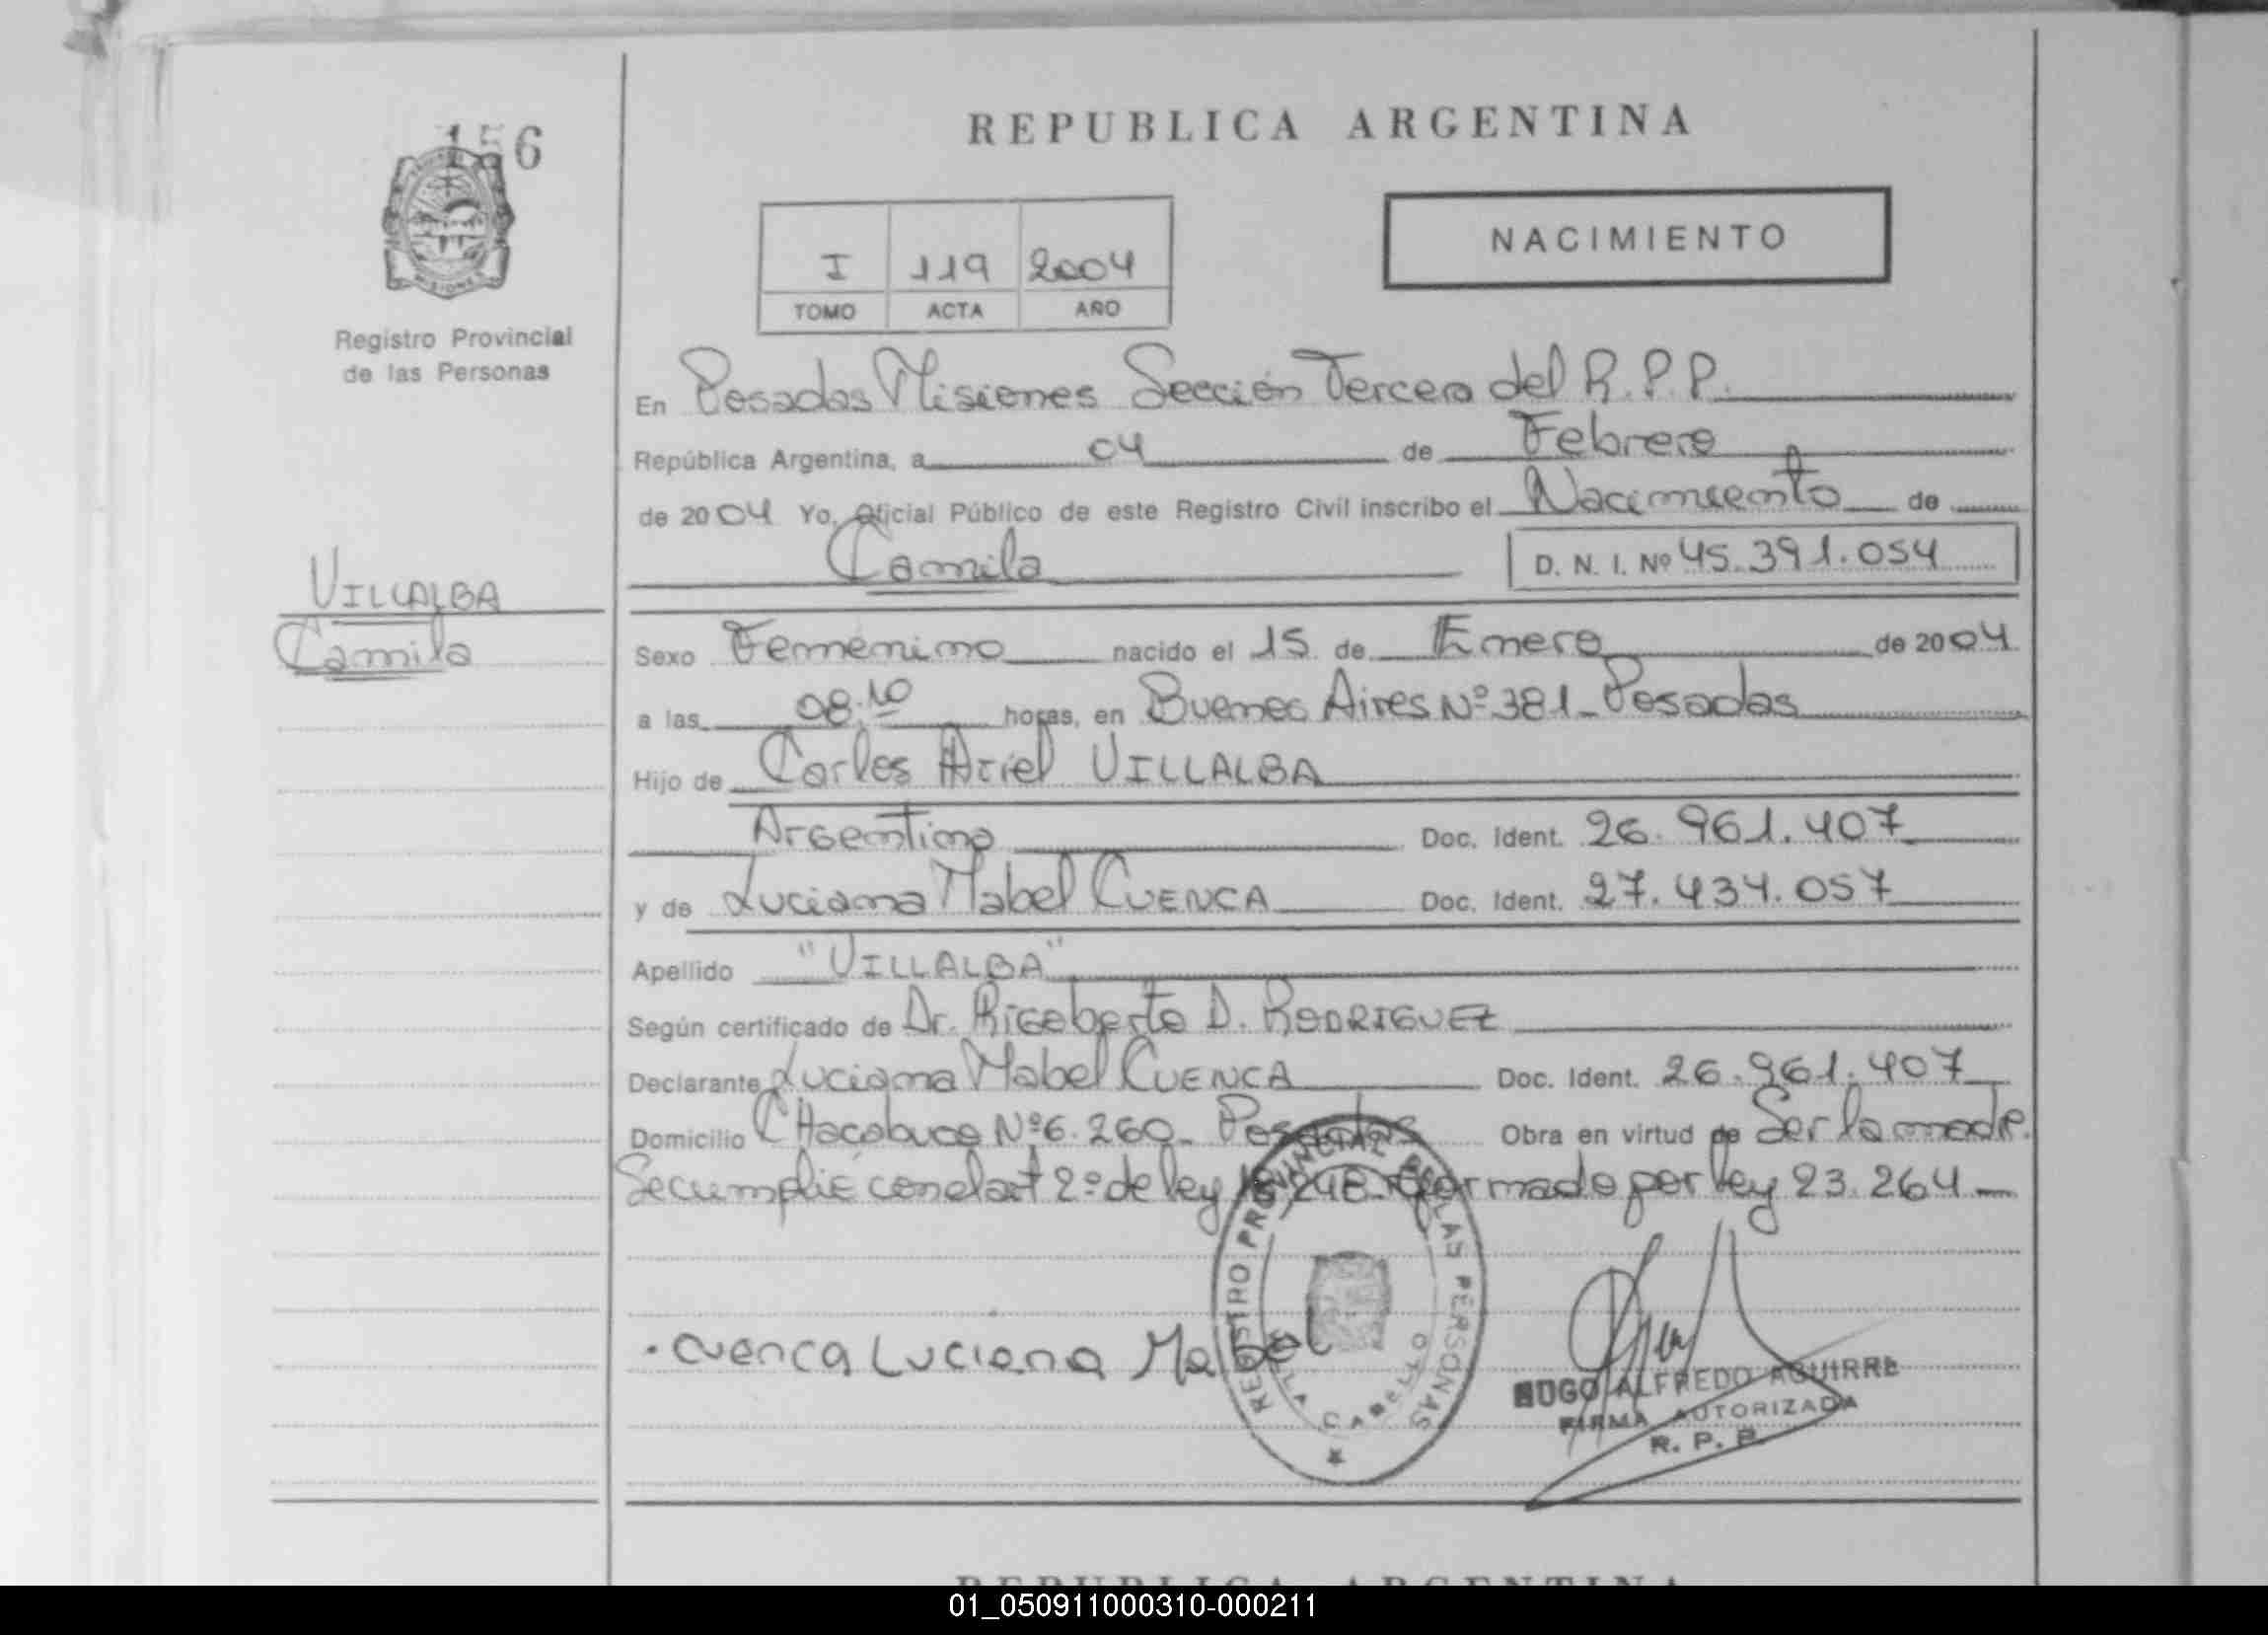 156
REPUBLICA ARGENTINA
NACIMIENTO
I 119 2004
TOMO ACTA AÑO
Registro Provincial
de las Personas
En Posadas Misiones Sección Tercera del R.P.P.
República Argentina, a 04 de Febrero
de 2004 Yo, Oficial Público de este Registro Civil inscribo el Nacimiento de
Camila D. N. I. Nº 45.391.054
VILLALBA
Camila
Sexo Femenino nacido el 15 de Enero de 2004
a las 08.10 horas, en Buenos Aires Nº 381 - Posadas
Hijo de Carlos Ariel VILLALBA
Argentino Doc. Ident. 26.961.407
y de Luciana Mabel CUENCA Doc. Ident. 27.434.057
Apellido "VILLALBA"
Según certificado de Dr. Rigoberto D. RODRIGUEZ
Declarante Luciana Mabel CUENCA Doc. Ident. 26.961.407
Domicilio CHacabuco Nº 6.260 - Posadas Obra en virtud de Ser la madre.
Se cumplió con el art 2º de ley 18.248 - reformado por ley 23.264 -
REGISTRO PROVINCIAL DE LAS PERSONAS
VILLA CABELLO
. Cuenca Luciana Mabel
HUGO ALFREDO AGUIRRE
FIRMA AUTORIZADA
R. P. P.
REPUBLICA ARGENTINA
01_050911000310-000211